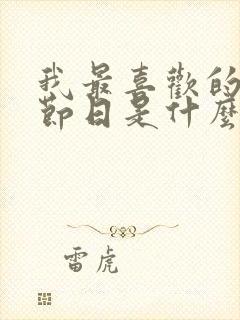 我最喜歡的
節日是什麼
雷虎